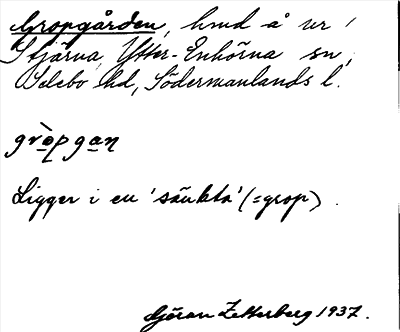 Gropgården, hmd å ur /
Stjärna, Ytter-Enhörna sn,
Selebo hd, Södermanlands l.
gròpgan
Ligger i en 'sänkta' (=grop).
Göran Zetterberg 1937.